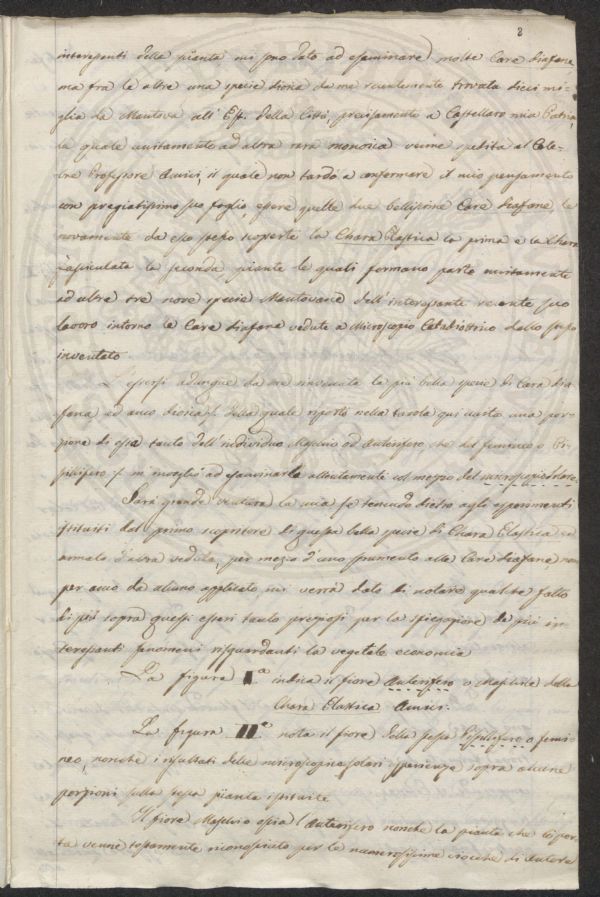 8
interessenti della pianta mi son dato ad esaminare molte Care diafane,
ma fra le altre una specie dioica da me recentemente trovata dieci mi-
glia da Mantova all' Est della Città, precisamente a Castellaro mia Patria,
la quale unitamente ad altra rara monoica venne spedita al Cele-
bre Professore Amici, il quale non tardò a confermare il mio pensamento
con pregiatissimo suo foglio, essere quelle due bellissime Care diafane le
novamente da esso stesso scoperte la Chara Elastica la prima e la Chara
Fasciculata la seconda piante le quali formano parte unitamente
ad altre tre nove specie Mantovane dell' interessante recente suo
lavoro intorno le Care diafane vedute a Microscopio Catadiottrico dallo stesso
inventato.
L' essersi adunque da me rinvenuta la più bella specie di Cara dia-
fana, ed anco dioica /: della quale riporto nella tavola qui unita una por-
zione di essa tanto dell' individuo Maschio od Anterifero, che del femineo o Pi-
stilifero :/ m' invogliò ad esaminarla attentamente col mezzo del microscopio solare.
Sarà grande ventura la mia se tenendo dietro agli esperimenti
istituiti dal primo scopritore di questa bella specie di Chara Elastica ed
armato d' altra veduta, per mezzo d' uno strumento alle Care diafane non
per anco da alcuno applicato, mi verrà dato di notare qualche fatto
di più sopra questi esseri tanto preziosi per la spiegazione de più in-
teressanti fenomeni risguardanti la vegetale economia
La figura I.ª indica il fiore Anterifero o Maschile della
Chara Elastica Amici.
La figura II.ª nota il fiore della stessa Pistilifero o femi-
neo, nonchè i risultati delle microscopiche solari esperienze sopra alcune
porzioni sulla stessa pianta istituite
Il fiore Maschio ossia l' Anterifero nonchè la pianta che il por-
ta venne tostamente riconosciuto per le numerosissime di Antere